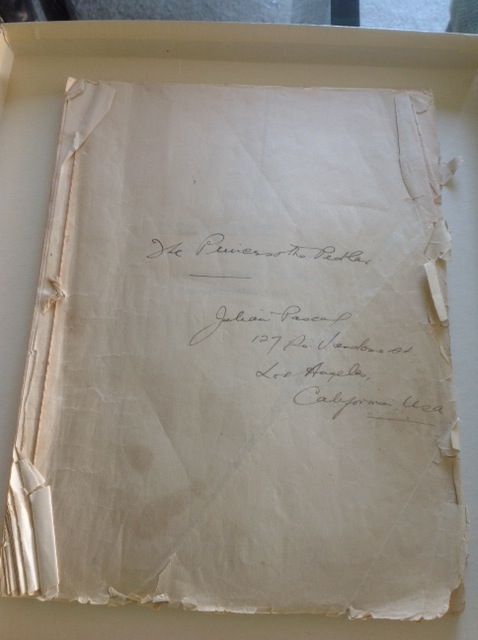 The Princess & the Pedlar
Julian Pascal
127 So Vendome st
Los Angeles,
California USA